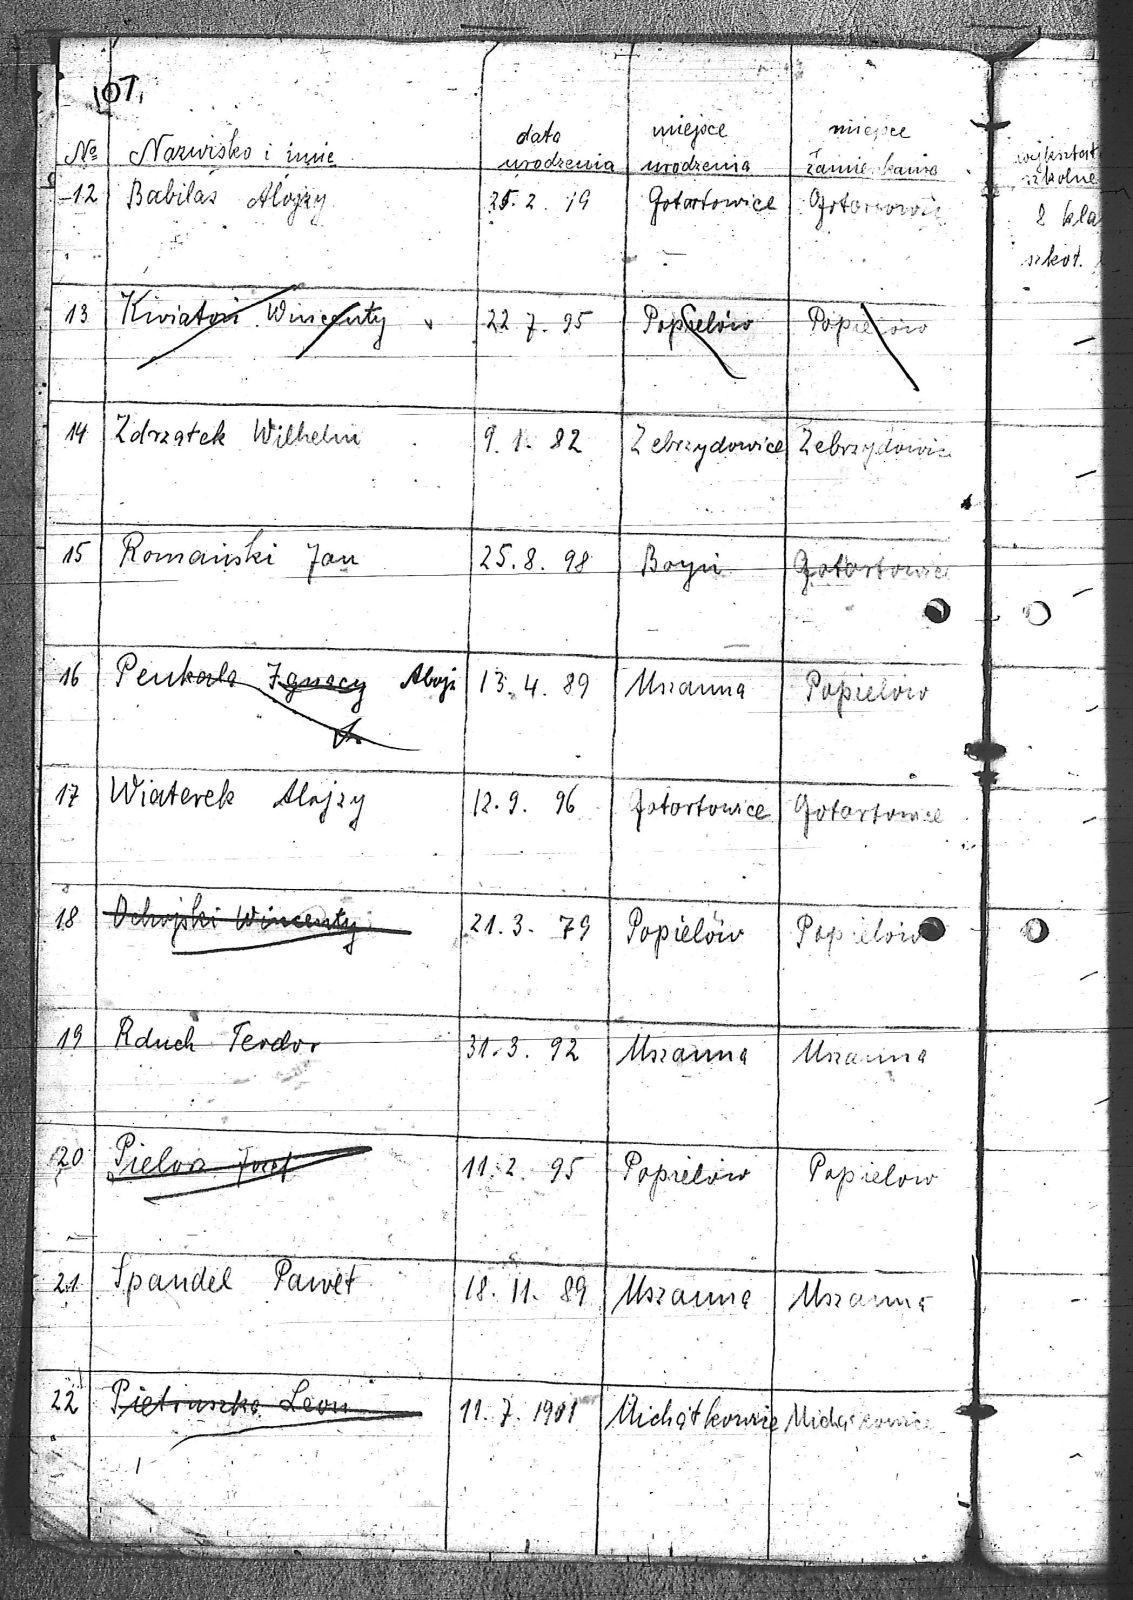 107,
№ Nazwisko i imię data urodzenia miejsce urodzenia miejsce zamieszkania wykształ szkolne
12 Babilas Alojzy 25. 2. 19 Gotartowice Gotartowic 2 kla szkoł.
13 Kwiatoń Wincenty 22 7. 95 Popielów Popielów
14 Zdrzałek Wilhelm 9. 1. 82 Zebrzydowice Zebrzydowic
15 Romański Jan 25. 8. 98 Boyń Gotartowice
16 Penkala Ignacy Alojz 13. 4. 89 Mszanna Popielów
17 Wiaterek Alojzy 12. 9. 96 Gotartowice Gotartowice
18 Ochojski Wincenty 21. 3. 79 Popielów Popielów
19 Rduch Teodor 31. 3. 92 Mszanna Mszanna
20 Pielorz Józef 11. 2. 95 Popielów Popielów
21 Spandel Paweł 18. 11. 89 Mszanna Mszanna
22 Pietruszka Leon 11. 7. 1901 Michałkowice Michałkowice